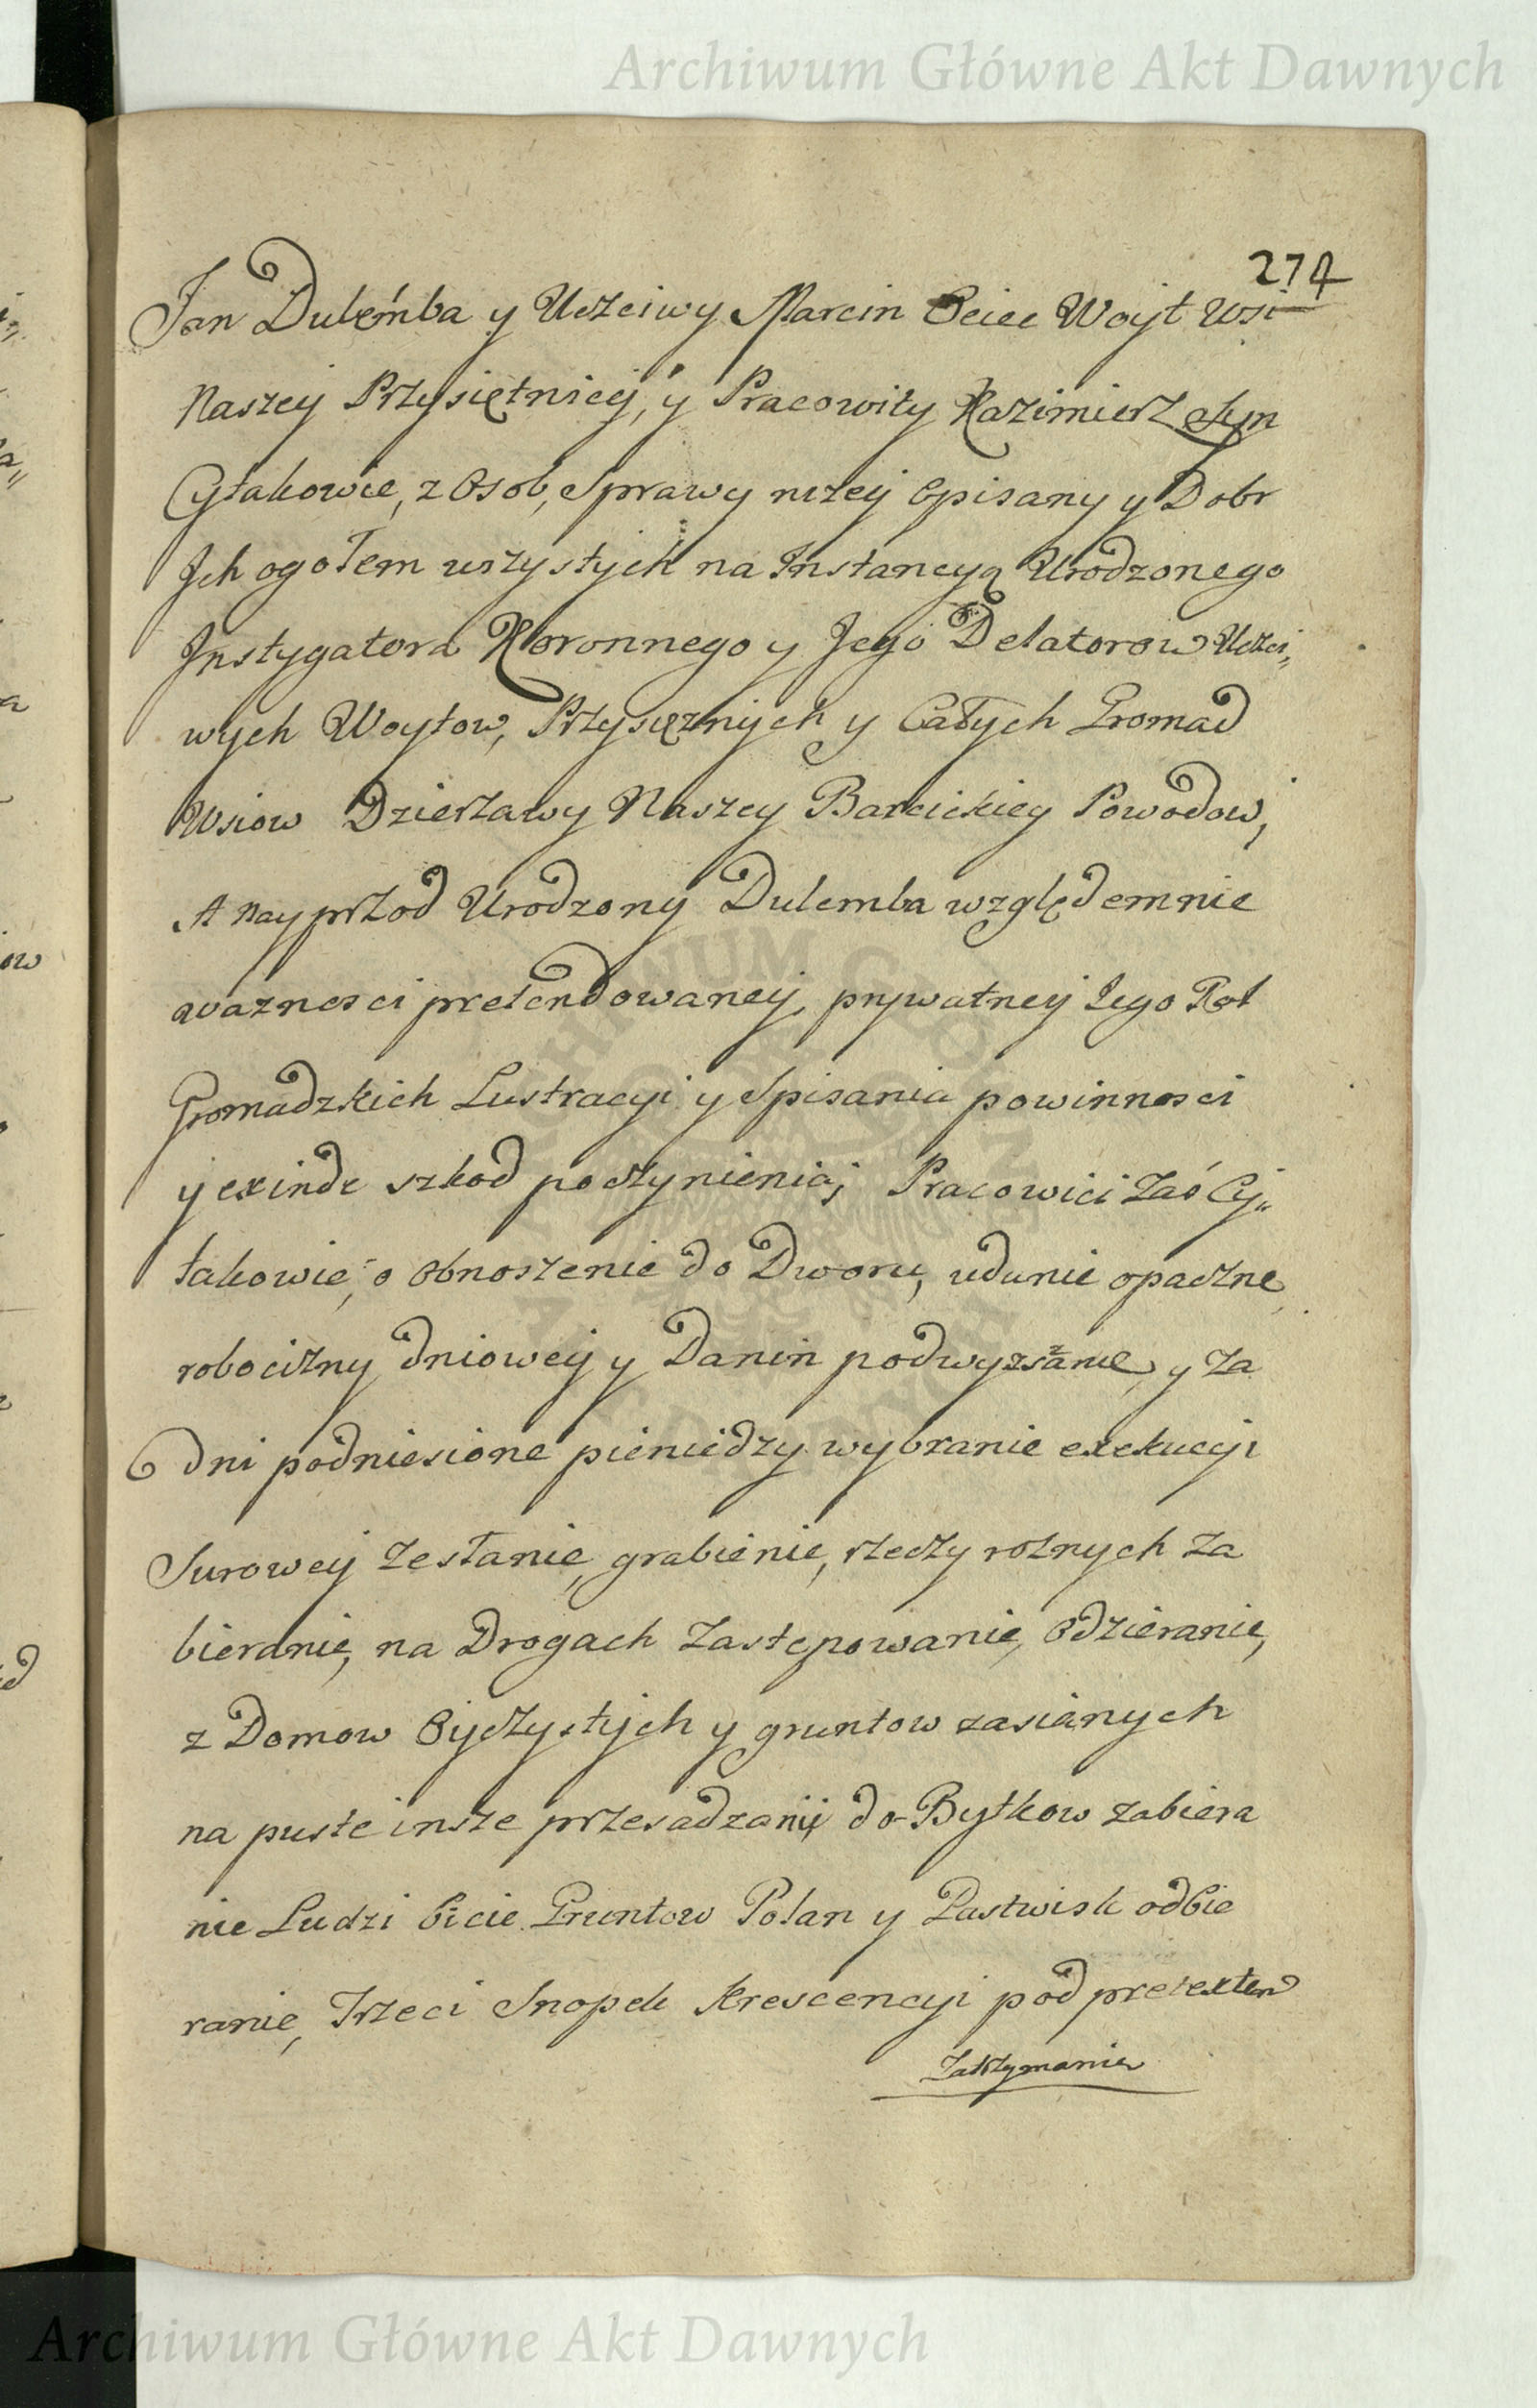 Archiwum Główne Akt Dawnych
274
Jan Dulemba y Uczciwy Marcin Ociec Woyt Wsi
Naszey Przysiętnicy, y Pracowity Kazimierz Syn
Cyłakowie, z Osob, Sprawy niżey opisany y Dobr
Jch ogołem wszystych na Instancyą Urodzonego
Jnstygatora Koronnego y Jego Delatorow Uczci„
wych Woytow, Przysięznych y Całych Gromad
Wsiow Dzierzawy Naszey Barcickiey Powodow,
A nayprzod Urodzony Dulemba względem nie
waznosci pretendowaney, prywatney Jego Rol
Gromadzkich Lustracyi y Spisania powinnosci
y exinde szkod poczynienia; Pracowici zaś Cy„
łakowie, o obnoszenie do Dworu, udanie opaczne
robocizny dniowey y Danin podwyzszanie, y za
dni podniesione pieniedzy wybranie exekucyi
Surowey zesłanie, grabienie, rzeczy roznych za
bieranie, na Drogach zastępowanie, odzieranie,
z Domow Oyczystych y gruntow zasianych
na puste insze przesadzanie do Bytkow zabiera
nie Ludzi bicie Gruntow Polan y Pastwisk odbie
ranie, Trzeci Snopek krescencyi pod pretextem
Zatrzymania
Archiwum Główne Akt Dawnych